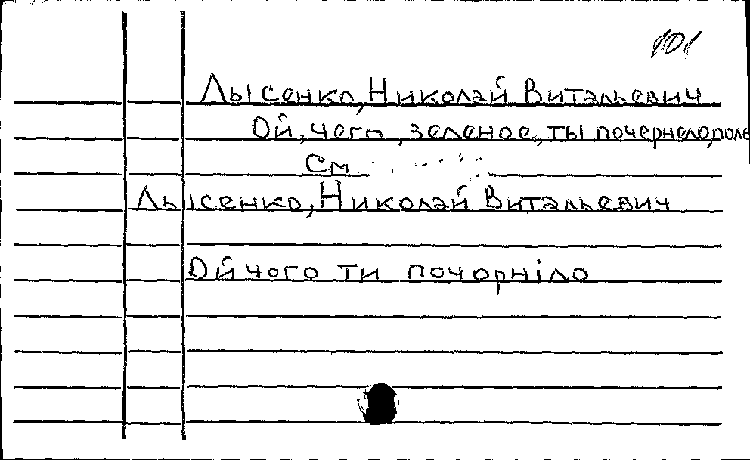 101
Лысенко, Николай Витальевич
Ой, чего, зеленое, ты почернело, поле
См
Лысенко, Николай Витальевич
Ой чого ти почорніло